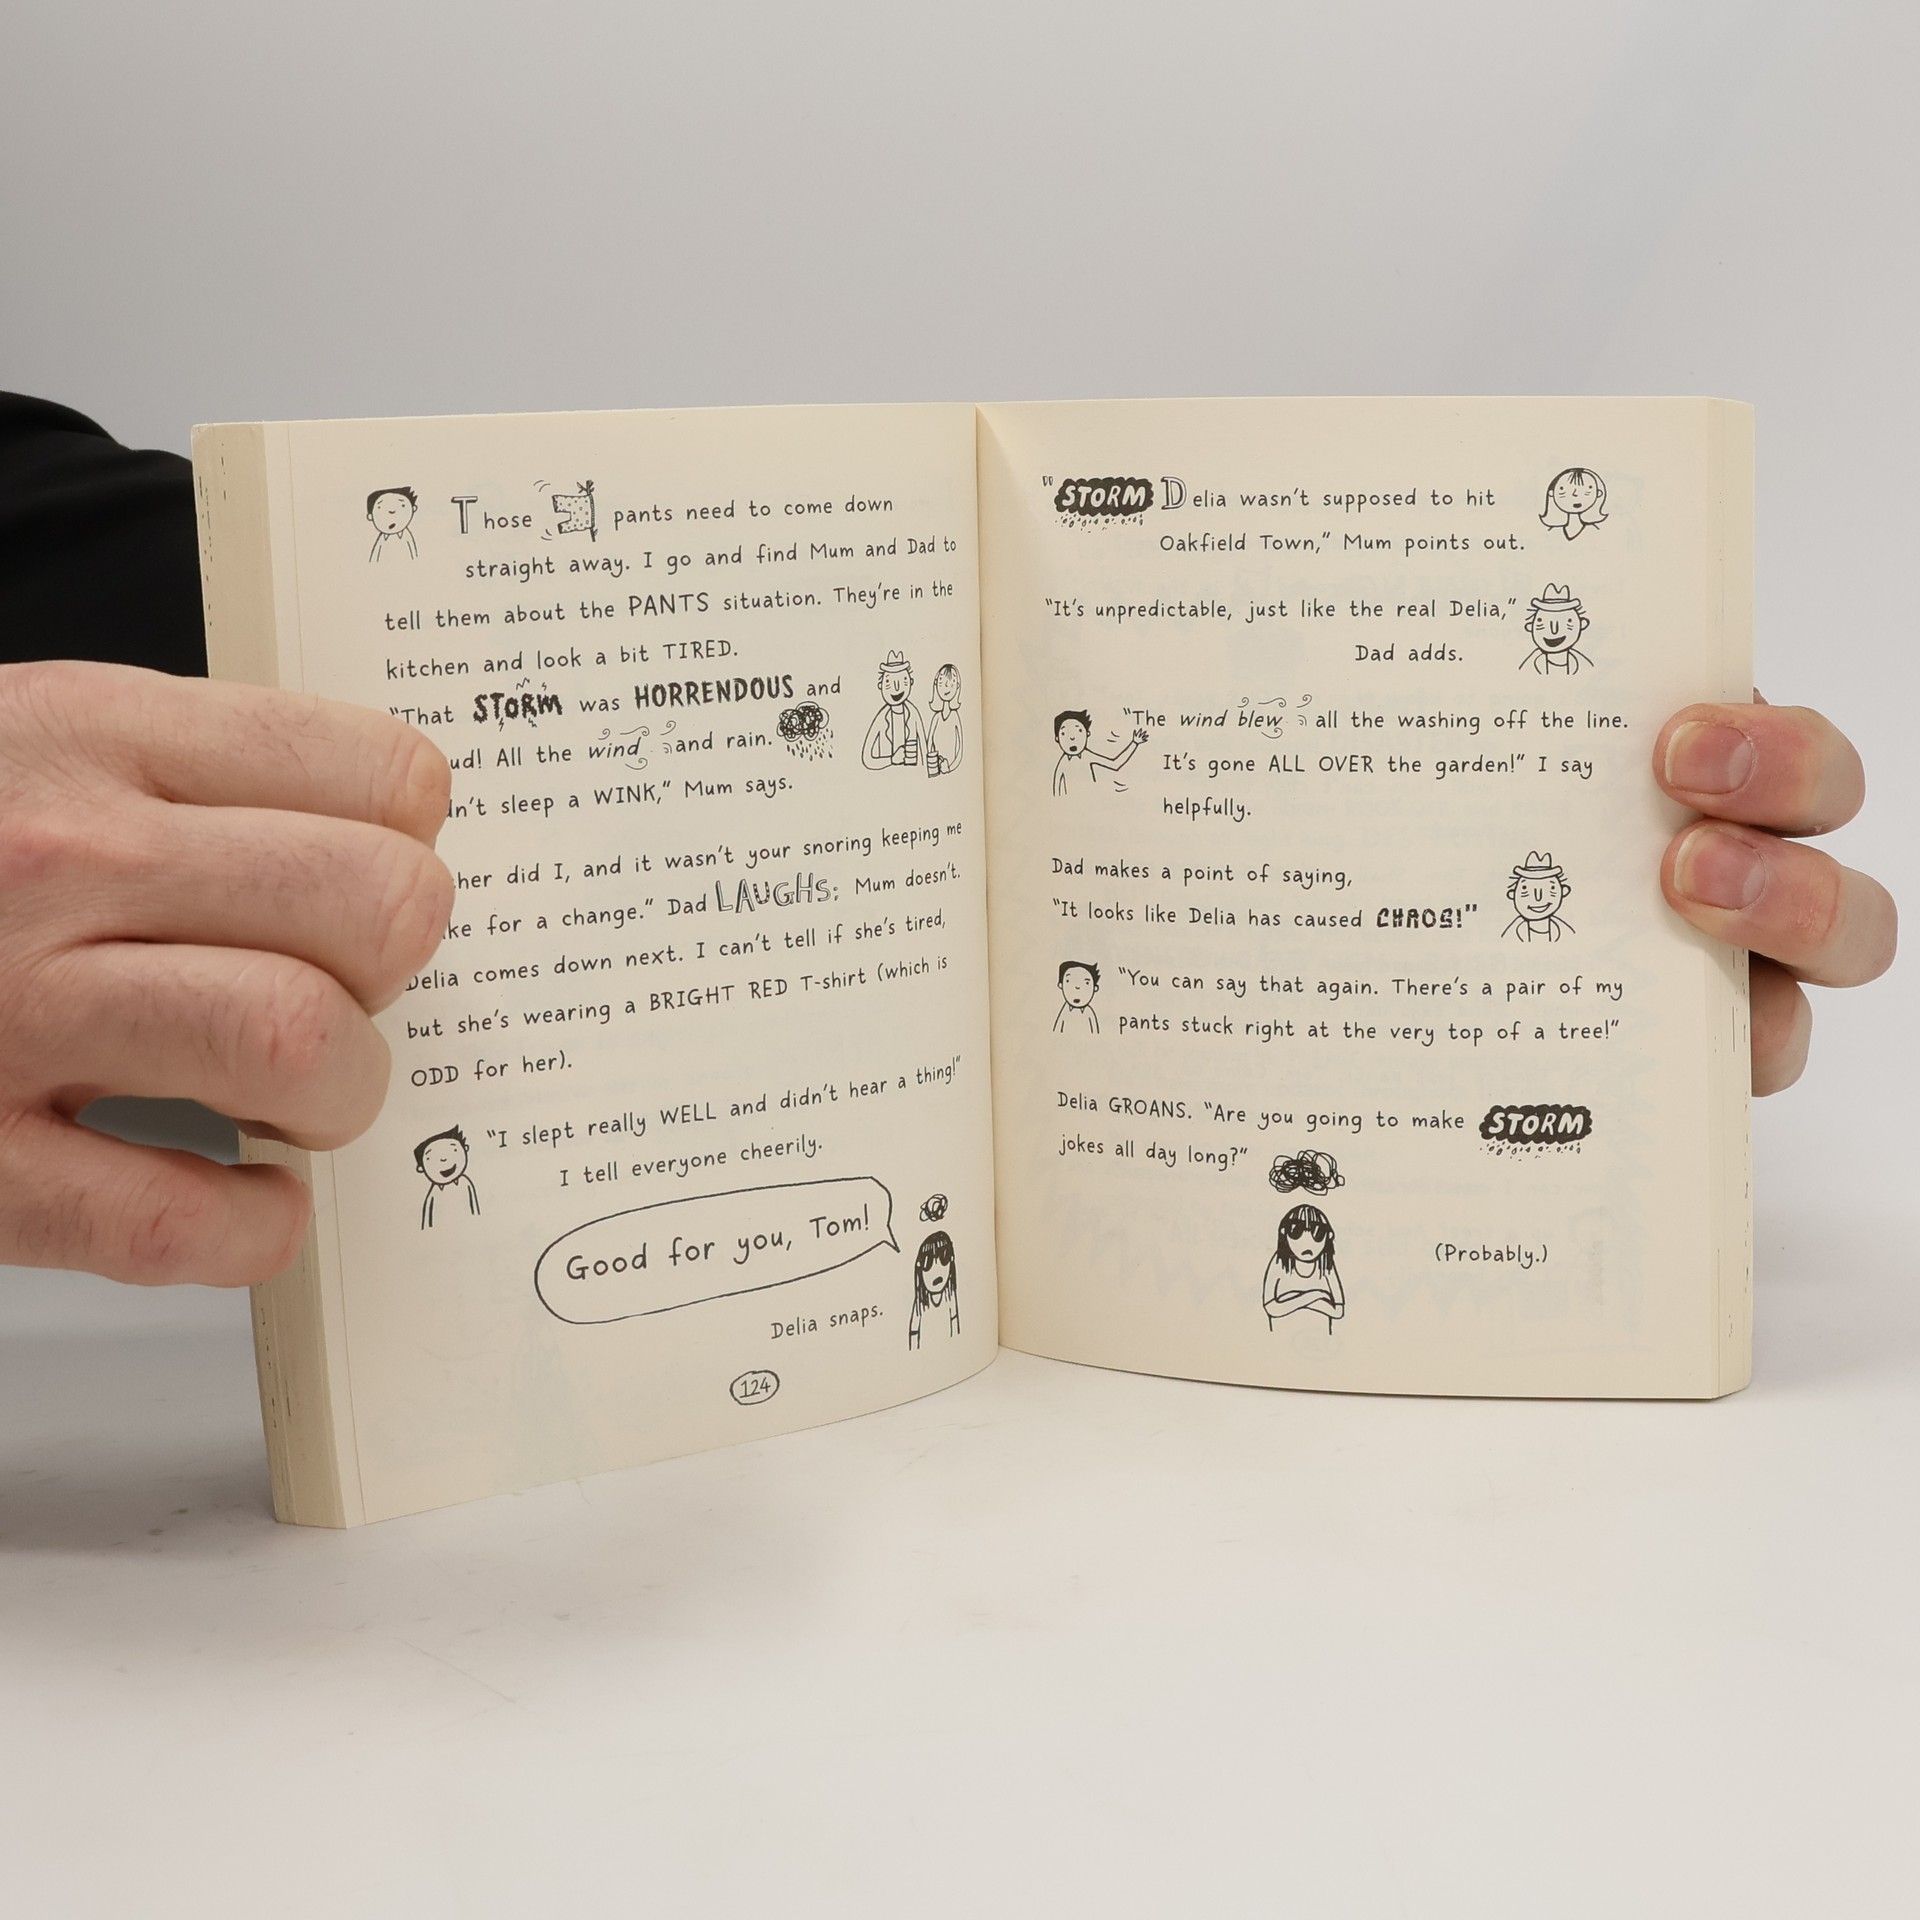 Those pants need to come down
straight away. I go and find Mum and Dad to
tell them about the PANTS situation. They're in the
kitchen and look a bit TIRED.
"That STORM was HORRENDOUS and
All the wind and rain.
sleep a WINK," Mum says.
did I, and it wasn't your snoring keeping me
for a change." Dad LAUGHS; Mum doesn't.
Delia comes down next. I can't tell if she's tired,
but she's wearing a BRIGHT RED T-shirt (which is
ODD for her).
"I slept really WELL and didn't hear a thing!"
I tell everyone cheerily.
Good for you, Tom!
Delia snaps.
124
"STORM Delia wasn't supposed to hit
Oakfield Town," Mum points out.
"It's unpredictable, just like the real Delia,"
Dad adds.
"The wind blew all the washing off the line.
It's gone ALL OVER the garden!" I say
helpfully.
Dad makes a point of saying,
"It looks like Delia has caused CHAOS!"
"You can say that again. There's a pair of my
pants stuck right at the very top of a tree!"
Delia GROANS. "Are you going to make STORM
jokes all day long?"
(Probably.)